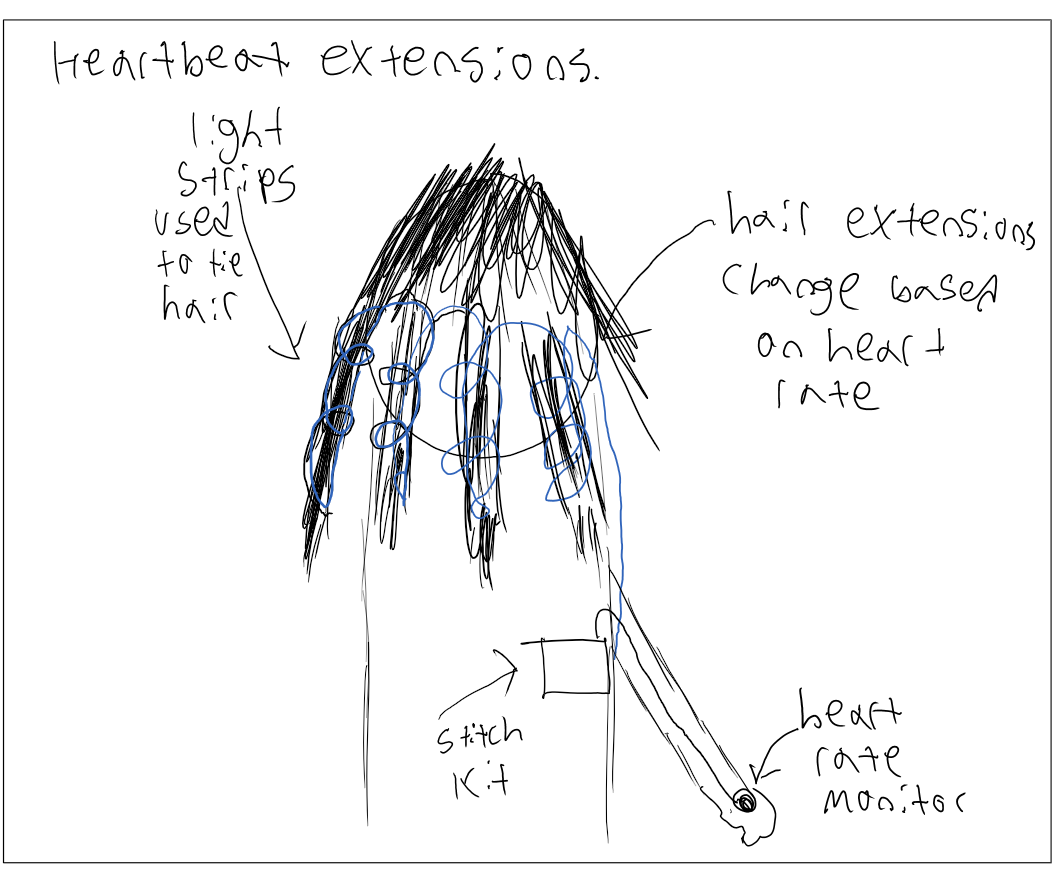 Heartbeat extensions.
light
strips
used
to tie
hair
hair extensions
change based
on heart
rate
stitch
Kit
heart
rate
monitor